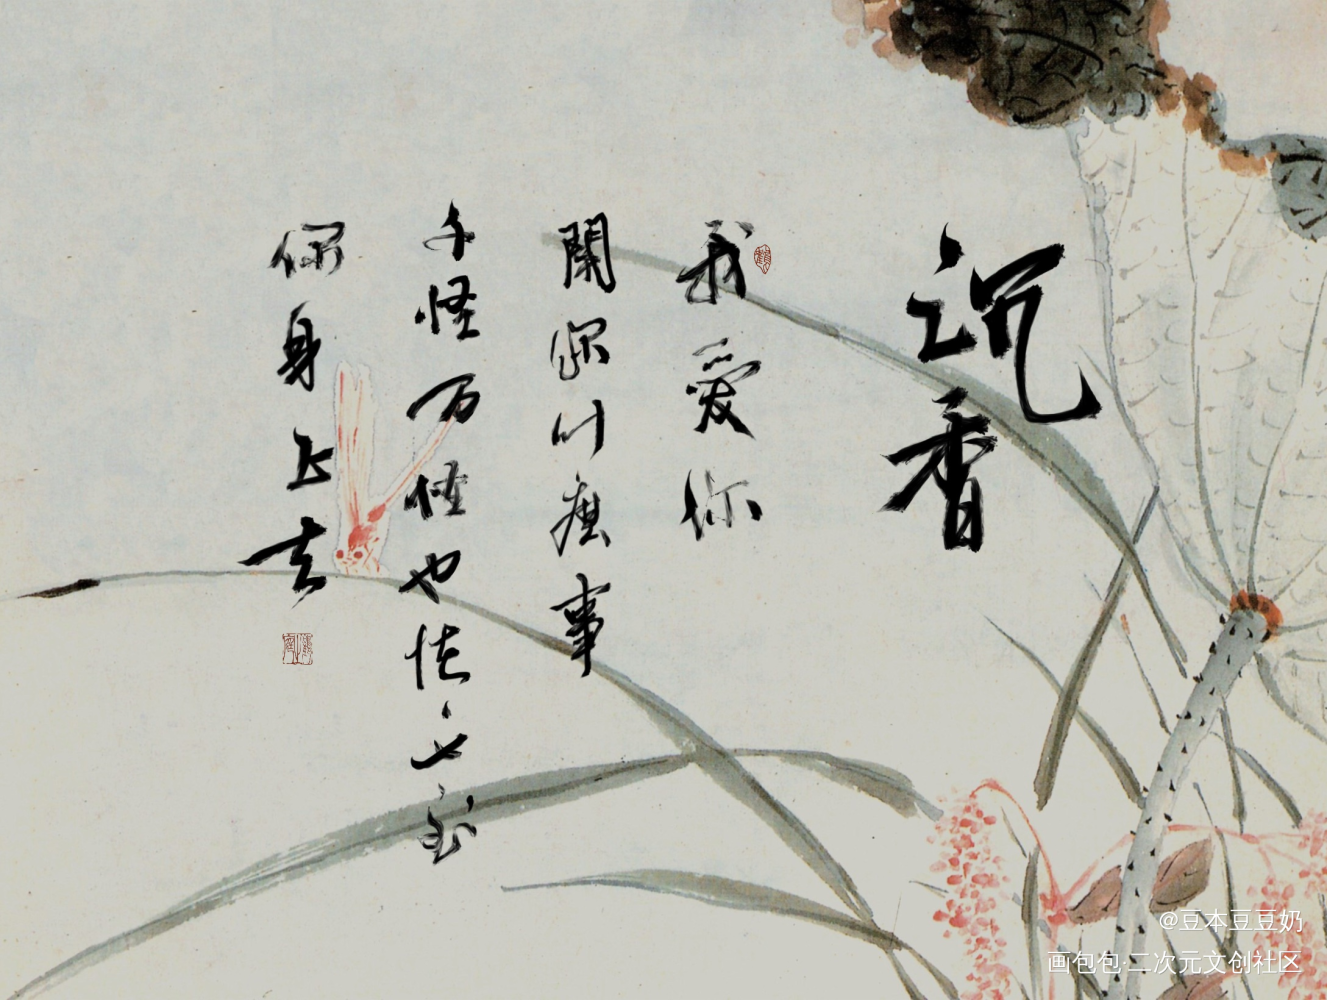 沉香
我愛你
關你什麼事
千怪万怪也怪不到
你身上去
@豆本豆豆奶
画包包·二次元文创社区